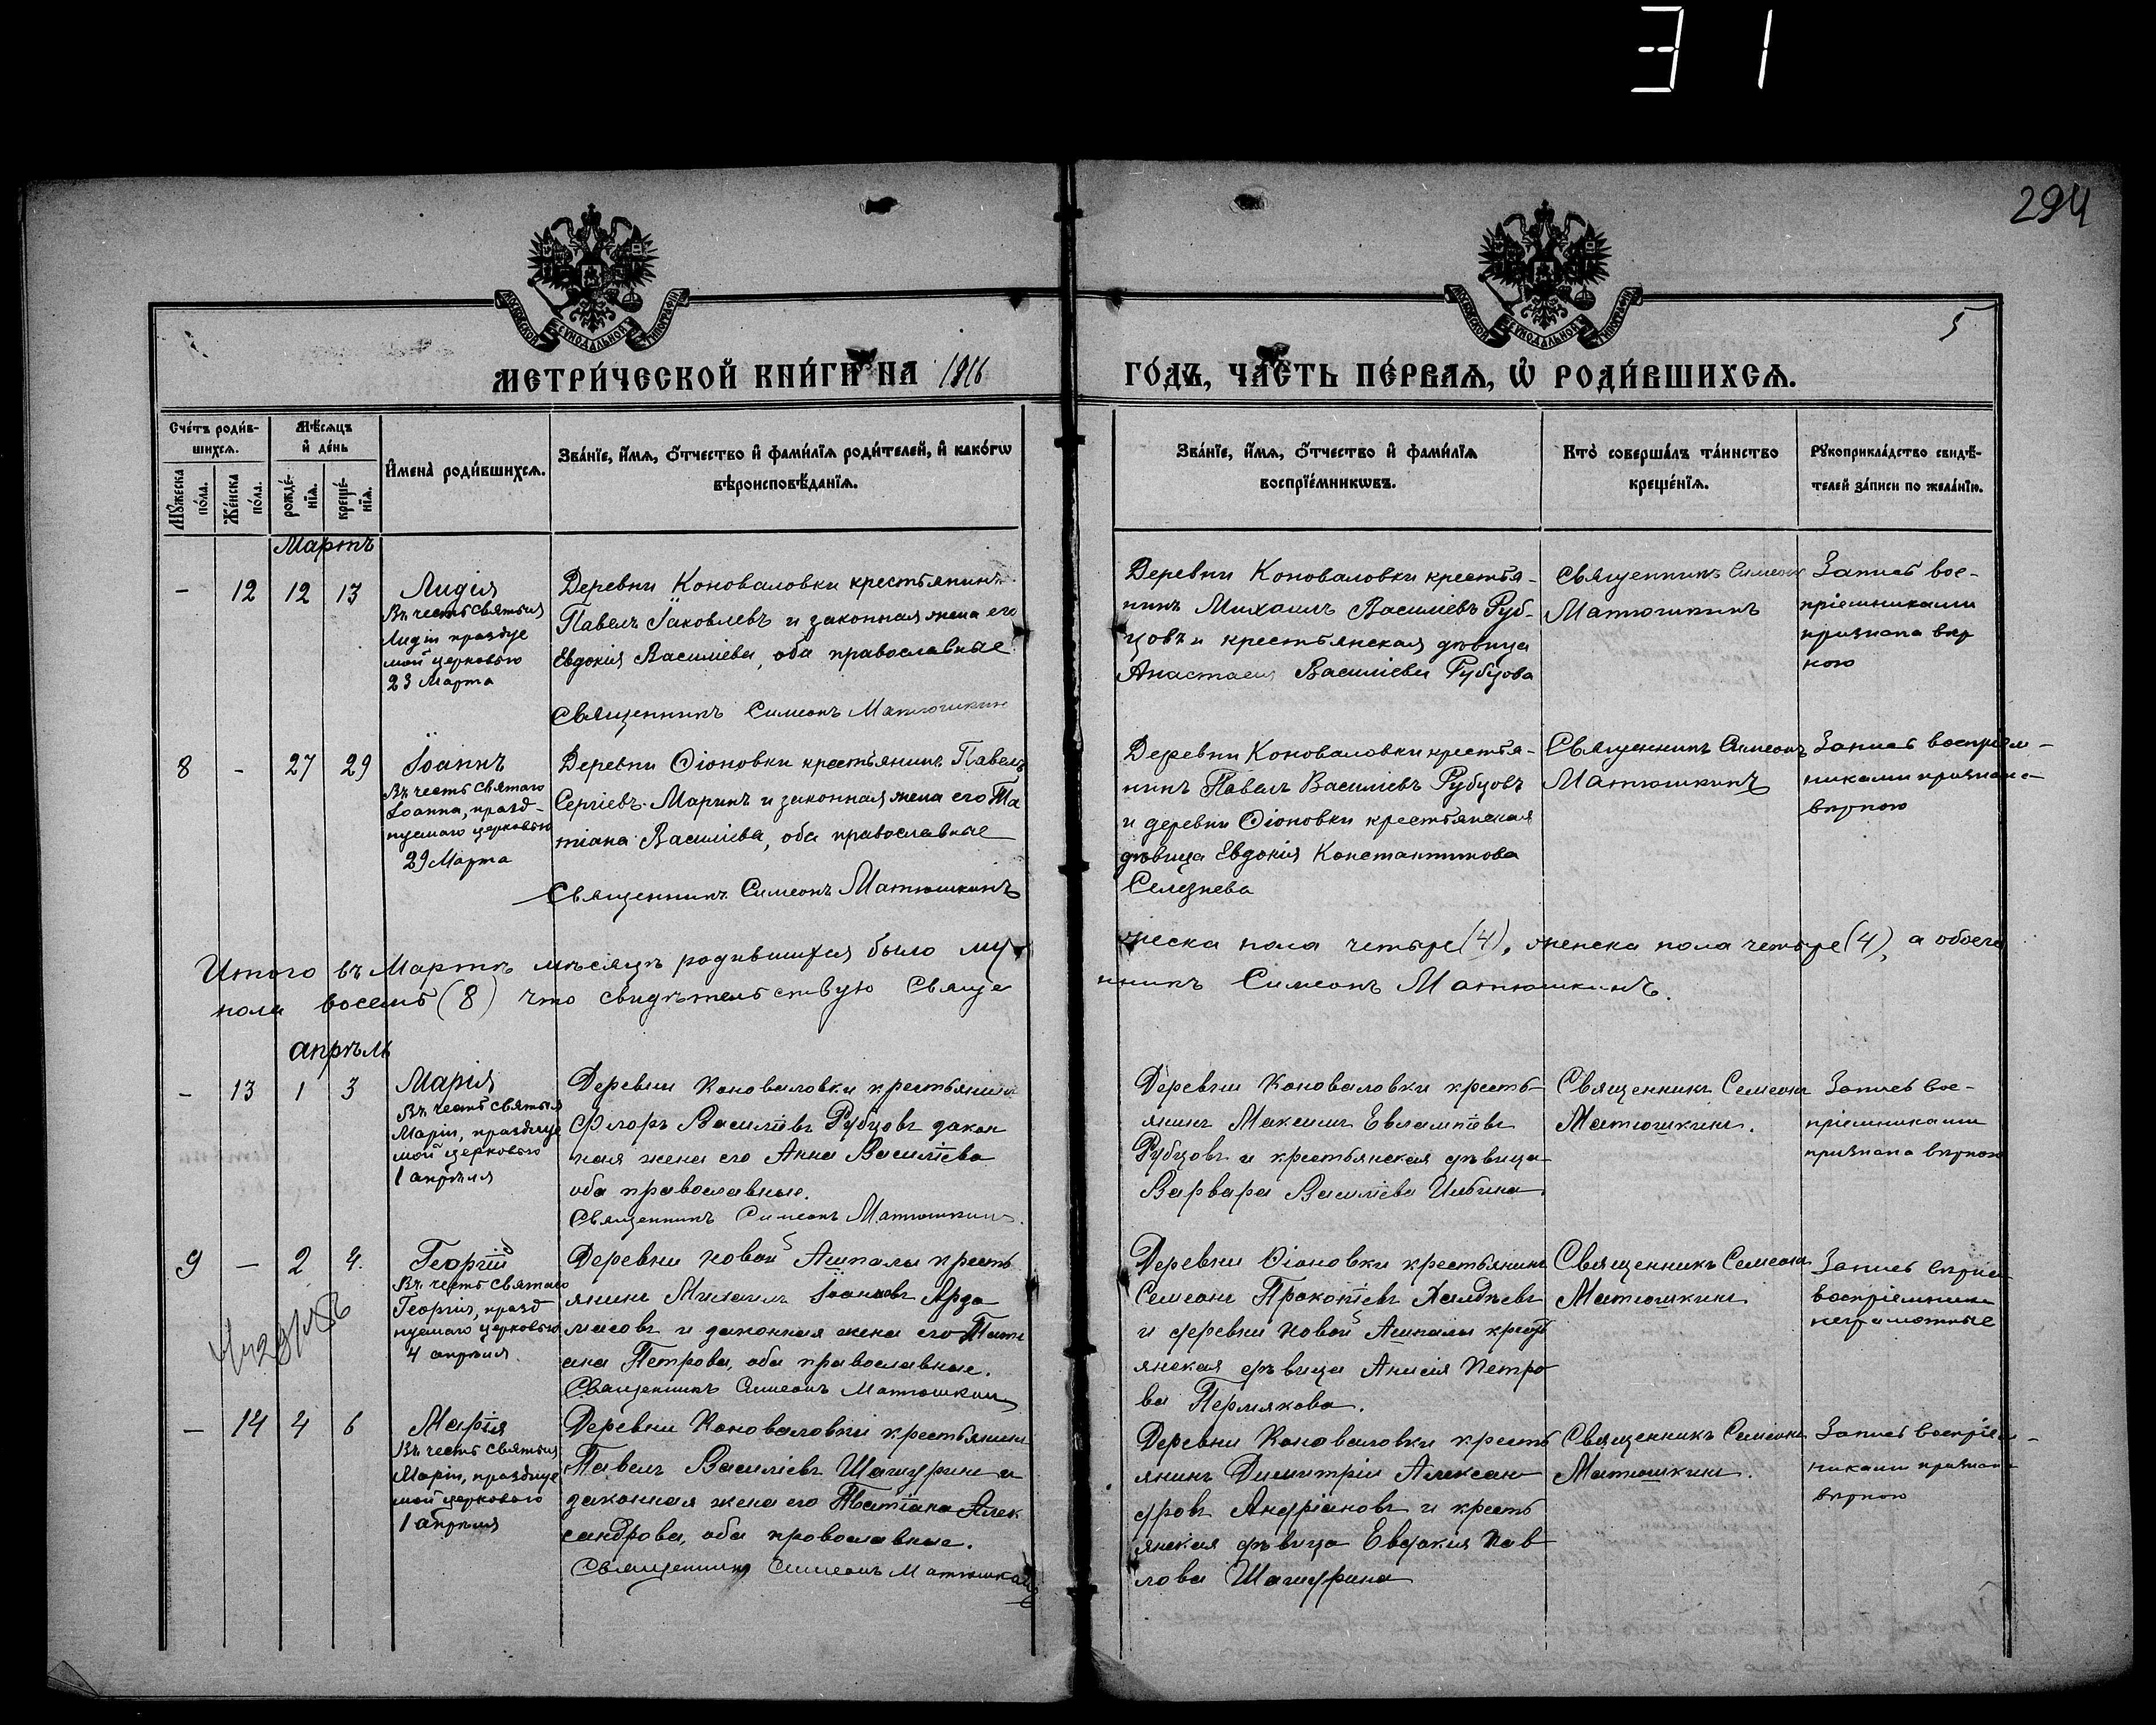 31
294
5
МОСКОВСКОЙ СѴНОДАЛЬНОЙ ТИПОГРАФІИ
МОСКОВСКОЙ СѴНОДАЛЬНОЙ ТИПОГРАФІИ
МЕТРИ́ЧЕСКОЙ КНИ́ГИ НА 1916
ГО́ДЪ, ЧА́СТЬ ПЕ́РВАЯ, Ѡ РОДИ́ВШИХСЯ.
Сче́тъ роди́в-
шихся.
Мѣ́сяцъ
и де́нь
Му́жеска
по́ла.
Же́нска
по́ла.
рожде́-
нїя.
креще́-
нїя.
Имена̀ роди́вшихся.
Зва́нїе, и́мя, о́тчество и фами́лїя роди́телей, и како́гѡ
вѣроисповѣ́данїя.
Зва́нїе, и́мя, о́тчество и фами́лїя
воспрїе́мникѡвъ.
Кто̀ соверша́лъ та́инство
креще́нїя.
Рукоприкла́дство свидѣ́-
телей за́писи по жела́нїю.
Мартъ
- 12 12 13
Лидія
Въ честь святыя
Лидіи празднуе
мой церковью
23 Марта
Деревни Коноваловки крестьянинъ
Павелъ Іаковлевъ и законная жена его
Евдокія Василіева, оба православные
Священникъ Симеонъ Матюшкинъ
Деревни Коноваловки крестья-
нинъ Михаилъ Василіевъ Руб-
цовъ и крестьянская дѣвица
Анастасія Василіева Рубцова
Священникъ Симеонъ
Матюшкинъ
Запись вос-
пріемниками
признана вѣр
ною
8 - 27 29
Іоаннъ
Въ честь святаго
Іоанна, празд-
нуемаго церковью
29 Марта
Деревни Оіоновки крестьянинъ Павелъ
Сергіевъ Маринъ и законная жена его Та
тіана Василіева, оба православные
Священникъ Симеонъ Матюшкинъ
Деревни Коноваловки крестья-
нинъ Павелъ Василіевъ Рубцовъ
и деревни Оіоновки крестьянская
дѣвица Евдокія Константинова
Селезнева
Священникъ Симеонъ
Матюшкинъ
Запись воспріем-
никами признана
вѣрною
Итого въ Мартѣ мѣсяцѣ родившихся было му
жеска пола четыре (4), женска пола четыре (4), а обоего
пола восемь (8) что свидѣтельствую Свяще
нникъ Симеонъ Матюшкинъ.
апрѣль
- 13 1 3
Марія
Въ честь святыя
Маріи, празднуе
мой церковью
1 апрѣля
Деревни Коноваловки крестьянинъ
Флоръ Василіевъ Рубцовъ закон
ная жена его Анна Василіева
оба православные.
Священникъ Симеонъ Матюшкинъ.
Деревни Коноваловки кресть-
янинъ Максимъ Евлампіевъ
Рубцовъ и крестьянская дѣвица
Варвара Василіева
Священникъ Семеонъ
Матюшкинъ.
Запись вос-
пріемниками
признана вѣрною
9 - 2 4.
Георгій
Въ честь святаго
Георгія, празд
нуемаго церковью
4 апрѣля.
Деревни Новой Ашпалы кресть
янинъ Михаилъ Іоанновъ Арза
масовъ и законная жена его Тати
ана Петрова, оба православные.
Священникъ Симеонъ Матюшкинъ
Деревни Оіоновки крестьянинъ
Семеонъ Прокопіевъ Халдѣевъ
и деревни Новой Ашпалы крест
янская дѣвица Анисія Петро
ва Пермякова.
Священникъ Семеонъ
Матюшкинъ
Запись вѣрна
воспріемники
неграмотные
- 14 4 6
Марія
Въ честь святыя
Маріи, празднуе
мой церковью
1 апрѣля
Деревни Коноваловки крестьянинъ
Павелъ Василіевъ Шашуринъ и
законная жена его Татіана Алек
сандрова, оба православные.
Священникъ Симеонъ Матюшкинъ
Деревни Коноваловки кресть
янинъ Димитрій Алексан
дровъ Андріановъ и кресть
янская дѣвица Евдокія Пав
лова Шашурина
Священникъ Семеонъ
Матюшкинъ.
Запись воспріем-
никами признана
вѣрною